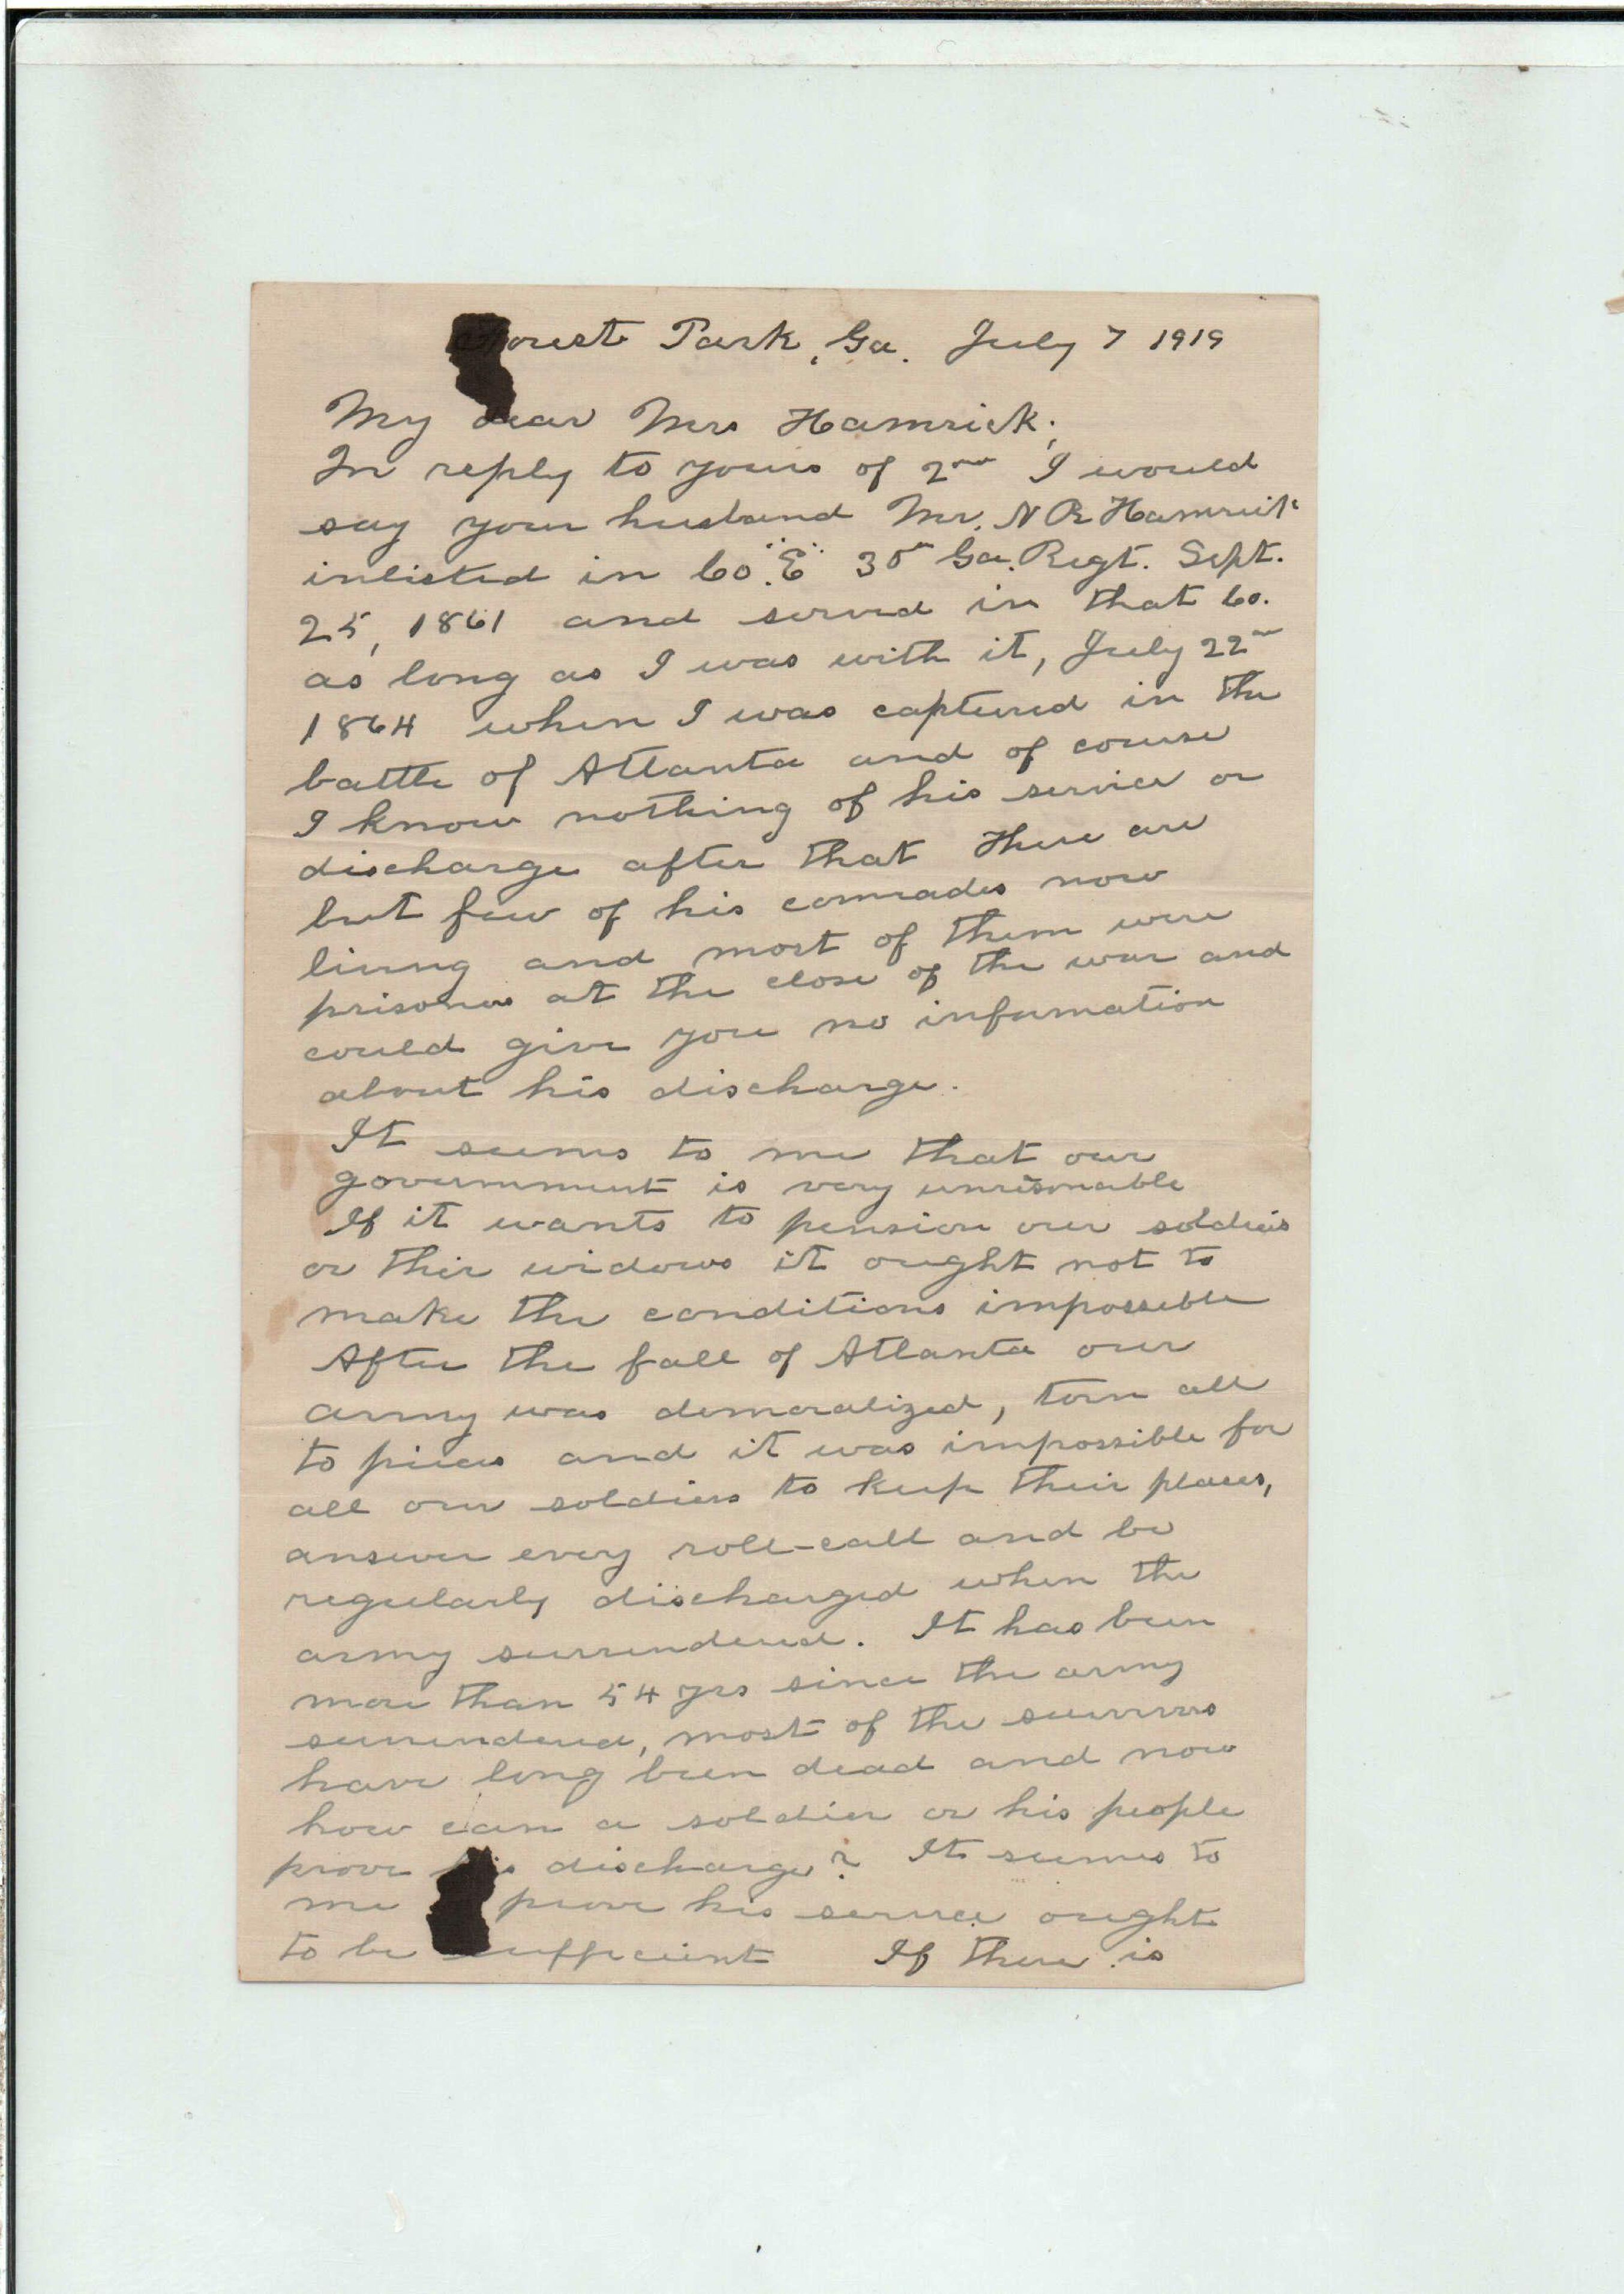 Forest Park, Ga. July 7 1919
My dear Mrs Hamrick;
In reply to yours of 2nd I would
say your husband Mr. N B Hamrick
inlisted in Co. "E" 30th Ga. Regt. Sept.
25, 1861 and served in that Co.
as long as I was with it, July 22nd
1864 when I was captured in the
battle of Atlanta and of course
I know nothing of his service or
discharge after that There are
but few of his comrades now
living and most of them were
prisoners at the close of the war and
could give you no information
about his discharge.
It seems to me that our
government is very unresonable
If it wants to pension our soldiers
or their widows it ought not to
make the conditions impossible
After the fall of Atlanta our
army was demoralized, torn all
to pieces and it was impossible for
all our soldiers to keep their places,
answer every roll-call and be
regularly discharged when the
army surrendered. It has been
more than 54 yrs since the army
surrendered, most of the survivors
have long been dead and now
how can a soldier or his people
prove his discharge? It seems to
me prove his service ought
to be sufficient If there is